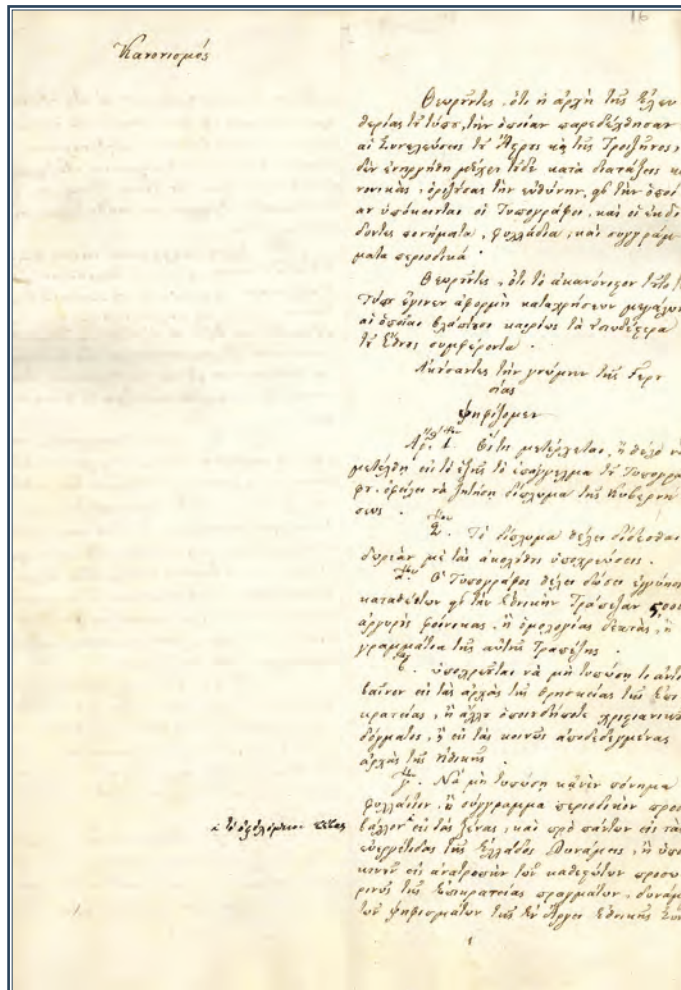 16
Κανονισμός
Θεωρῦντες, ὅτι ἡ ἀρχὴ τῆς ἐλευ
θερίας τῦ τύπȣ, τὴν ὁποίαν παρεδέχθησαν
αἱ Συνελεύσεις τῦ Ἄςρος κ τῆς Τροιζῆνος,
δὲν ἐνηργήθη μέχρι τῦδε κατὰ διατάξεις κα
νονικὰς, ὁριζȣσας τὴν εὐθύνην, εἰς τὴν ὁποί
αν ὑπόκεινται οἱ Τυπογράφοι, καὶ οἱ ἐκδί
δοντες ποιήματα, φυλλάδια, καὶ συγγράμ
ματα περιοδικά.
Θεωρῦντες, ὅτι τὸ ἀκανόνιςον τῦτο τῦ
τύπȣ ἔγινεν ἀφορμὴ καταχρήσεων μεγάλων
αἱ ὁποῖαι βλάπτȣσι καιρίως τὰ
τῦ ἔθνȣς συμφέροντα.
Ἀκȣσαντες τὴν γνώμην τῆς Γερȣ
σίας
ψηφίζομεν
Αρ. 1. Ὅςις μετέρχεται, ἢ θέλει νὰ
μετέλθῃ εἰς τὸ ἑξῆς τὸ ἐπάγγελμα τῦ Τυπογρά
φȣ, ὀφείλει νὰ ζητήσῃ δίπλωμα τῆς Κυβερνή
σεως.
2. Τὸ δίπλωμα θέλει δίδεσθαι
δωρεὰν μὲ τὰς ἀκολȣθȣς ὑποχρεώσεις.
α. Ὁ Τυπογράφος θέλει δώσει ἐγγύησιν
καταθέτων εἰς τὴν Ἐθνικὴν Τράπεζαν
ἀργυρȣς φοίνικας, ἢ ὁμολογίας δεκτὰς, ἢ
γραμμάτια τῆς αὐτῆς Τραπέζης.
β. ὑποχρεῦται νὰ μὴ τυπώσῃ τι ἀντι
βαῖνον εἰς τὰς ἀρχὰς τῆς θρησκείας τῆς Ἐπι
κρατείας, ἢ ἄλλȣ ὁποιȣδήποτε χριςιανικȣ
δόγματος, ἢ εἰς τὰς κοινῶς ἀποδεδεγμένας
ἀρχὰς τῆς ἠθικῆς.
γ. Νὰ μὴ τυπώσῃ κᾀνὲν πόνημα
φυλλάδιον, ἢ σύγγραμμα περιοδικὸν προσ
βάλλον εἰς τὰς ξένας, καὶ πρὸ πάντων εἰς τὰς
εὐεργέτιδας τῆς Ἑλλάδος Δυνάμεις, ἢ ὑπο
κινȣν εἰς ἀνατροπὴν τῶν καθεςώτων προσω
ρινῶς τῆς Ἐπικρατείας πραγμάτων, δυνάμει
τῶν ψηφισμάτων τῆς ἐν Ἄργει Ἐθνικῆς Συν